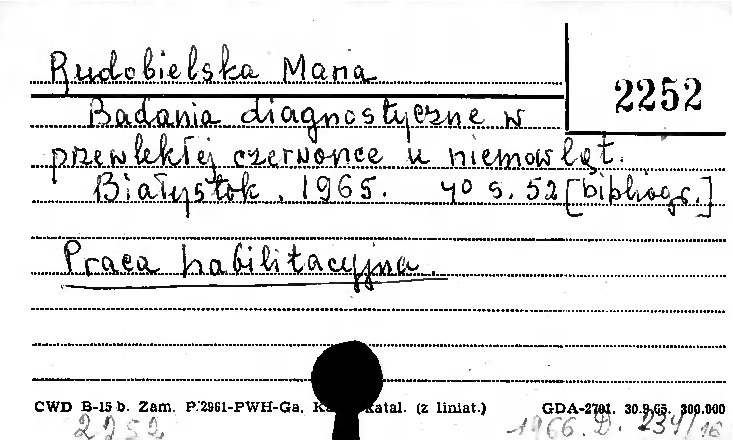 Rudobielska Maria
2252
Badania diagnostyczne w
przewlekłej czerwonce u niemowląt.
Białystok, 1965. 40 s. 52 [bibliogr.]
Praca habilitacyjna.
CWD B-15 b. Zam. P.2961-PWH-Ga. katal. (z liniat.) GDA-2701. 30.9.65. 300.000
2252 1966. D. 234/16